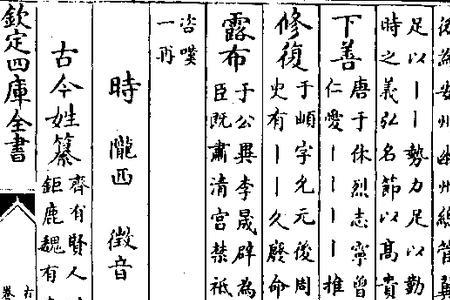 為安州幽州總管冀
足以丨丨勢力足以勤
時之義弘名節以高貴
下善 唐于休烈志寧曾
仁愛丨丨丨丨推
修復 于頔字允元後周
史有丨丨久廢命
露布 于公異李晟辟為
臣既肅清宮禁祗
咨嘆
一再
時 隴西 徵音
古今姓纂 齊有賢人
鉅鹿魏有
欽定四庫全書